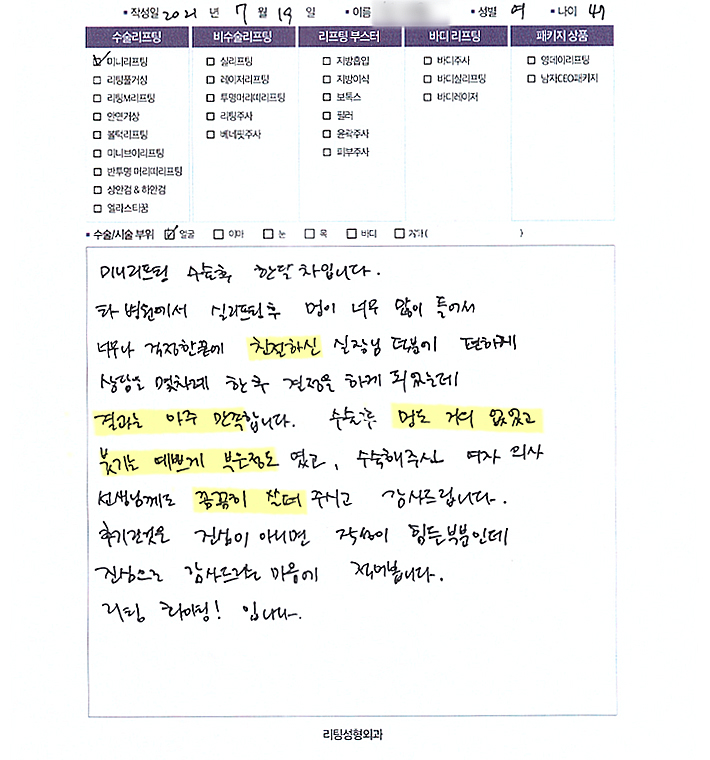 ▪ 작성일 2021 년 7 월 19 일 ▪ 이름 ▪ 성별 여 ▪ 나이 47
수술리프팅 비수술리프팅 리프팅 부스터 바디 리프팅 패키지 상품
☑ 미니리프팅 ☐ 실리프팅 ☐ 지방흡입 ☐ 바디주사 ☐ 영데이리프팅
☐ 리팅풀거상 ☐ 레이저리프팅 ☐ 지방이식 ☐ 바디실리프팅 ☐ 남자CEO패키지
☐ 리팅M리프팅 ☐ 투명머리띠리프팅 ☐ 보톡스 ☐ 바디레이저
☐ 안면거상 ☐ 리팅주사 ☐ 필러
☐ 볼턱리프팅 ☐ 베네핏주사 ☐ 윤곽주사
☐ 미니브이리프팅 ☐ 피부주사
☐ 반투명 머리띠리프팅
☐ 상안검 & 하안검
☐ 엘라스티꿈
▪ 수술/시술 부위 ☑ 얼굴 ☐ 이마 ☐ 눈 ☐ 목 ☐ 바디 ☐ 기타 ( )
미니리프팅 수술후 한달 차입니다.
타 병원에서 실리프팅후 멍이 너무 많이 들어서
너무나 걱정한끝에 친절하신 실장님 덕분에 편하게
상담을 몇차례 한 후 결정을 하게 되었는데
결과는 아주 만족합니다. 수술후 멍도 거의 없었고
붓기는 예쁘게 부은정도 였고, 수술해주신 여자 의사
선생님께도 꼼꼼히 살펴 주시고 감사드립니다.
후기란것은 진심이 아니면 작성이 힘든부분인데
진심으로 감사드리는 마음에 적어봅니다.
리팅 화이팅! 입니다.
리팅성형외과